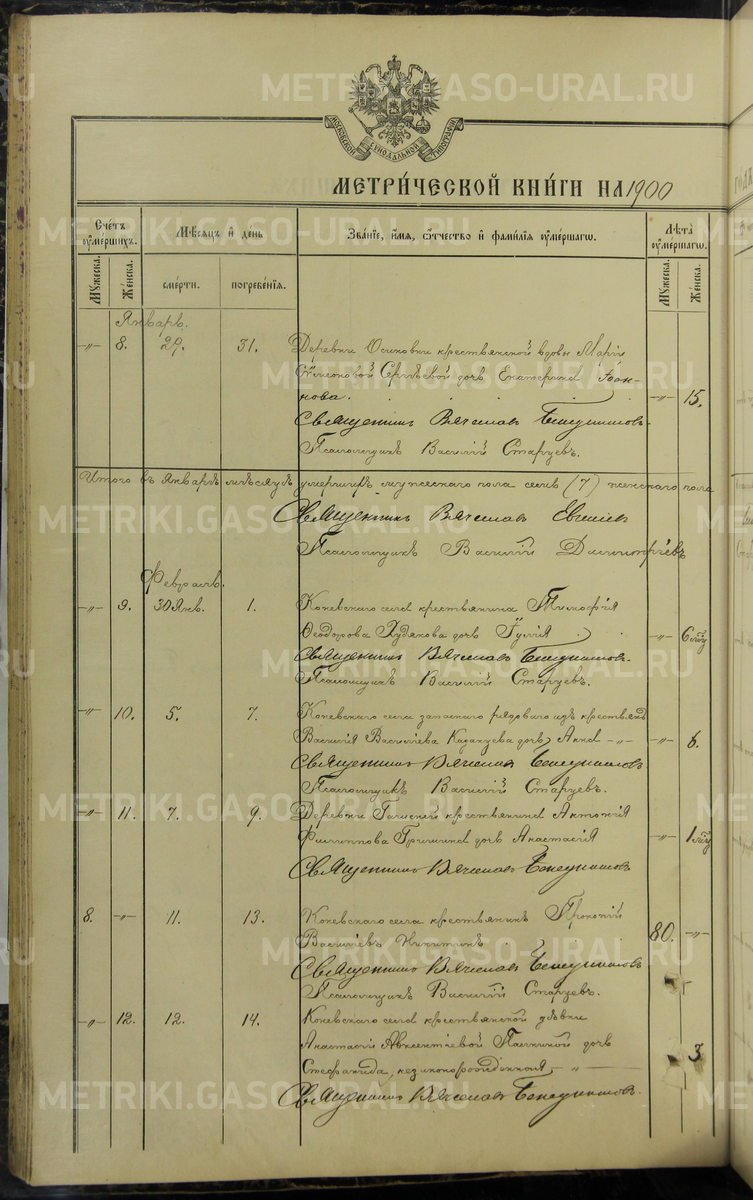 METRIKI.GASO-URAL.RU
МОСКОВСКОЙ СѴНОДАЛЬНОЙ ТИПОГРАФІИ
МЕТРИ́ЧЕСКОЙ КНИ́ГИ НА 1900
Сче́тъ ᲂу҆ме́ршихъ.
Мѣ́сяцъ и҆ де́нь
Зва́нїе, и҆́мя, ѻ҆́тчество и҆ фами́лїя ᲂу҆ме́ршагѡ.
Лѣ́та ᲂу҆ме́ршагѡ.
Му́жеска.
Же́нска.
сме́рти.
погребе́нїя.
Му́жеска.
Же́нска.
Январь.
-„- 8. 29. 31. Деревни Осиновки крестьянской вдовы Маріи
Сергѣевой дочь Екатерина Іоан-
нова. -„- 15.
Священникъ Вячеславъ
Псаломщикъ Василій Старцевъ.
Итого въ Январѣ мѣсяцѣ умершихъ мужескаго пола семь (7) женскаго пола
Священникъ Вячеславъ
Псаломщикъ Василій
Февраль.
-„- 9. 30 Янв. 1. Коневскаго села крестьянина Тимофея
Ѳеодорова Худякова дочь Юлія -„- 6
Священникъ Вячеславъ
Псаломщикъ Василій Старцевъ.
-„- 10. 5. 7. Коневскаго села запаснаго рядоваго изъ крестьянъ
Василія Васильева Казанцева дочь Анна -„- -„-
Священникъ Вячеславъ
Псаломщикъ Василій Старцевъ.
-„- 11. 7. 9. Деревни крестьянина Антонія
Филиппова дочь Анастасія -„- 1
Священникъ Вячеславъ
8. -„- 11. 13. Коневскаго села крестьянинъ Прокопій
Васильевъ Никитинъ 80. -„-
Священникъ Вячеславъ
Псаломщикъ Василій Старцевъ.
-„- 12. 12. 14. Коневскаго села крестьянской дѣвки
Анастасіи Авксентіевой дочь
Стефанида, незаконорожденная -„- 3
Священникъ Вячеславъ